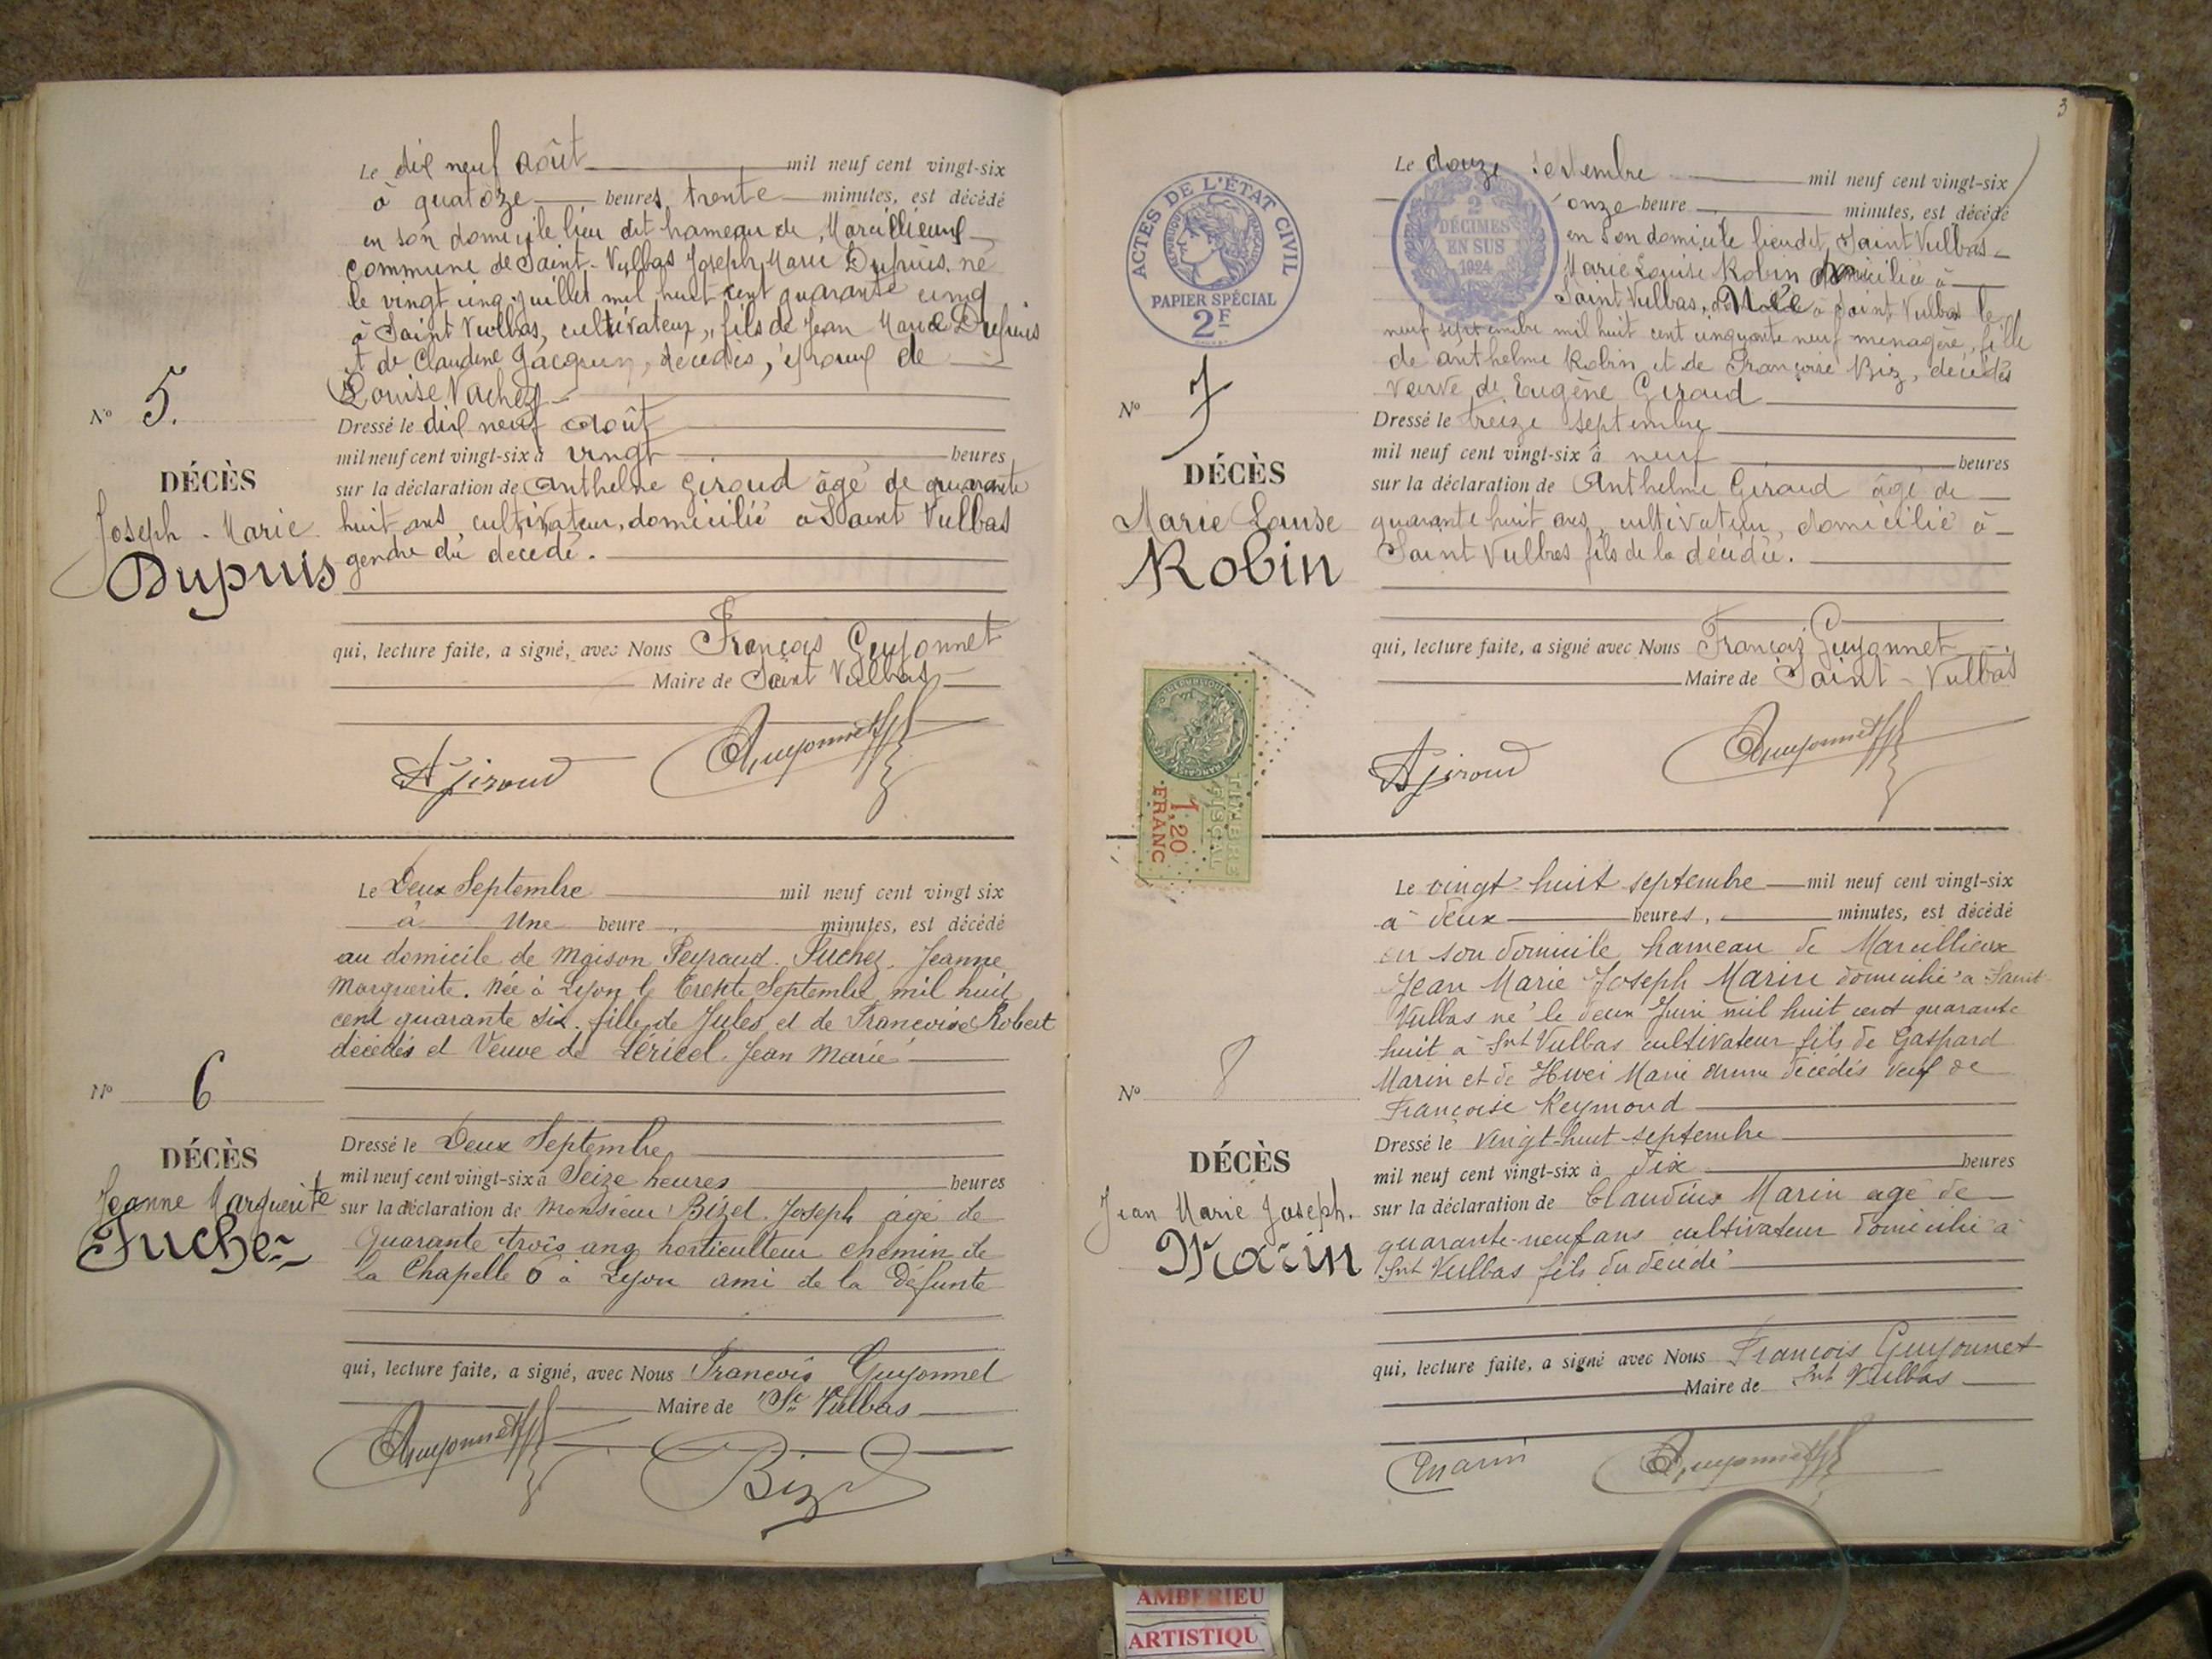 Le dix neuf août mil neuf cent vingt-six
à quatoze heures trente minutes, est décédé
en son domicile lieu dit hameau de Marcillieux
commune de Saint-Vulbas Joseph Marie Dupuis né
le vingt cinq juillet mil huit cent quarante cinq
à Saint Vulbas, cultivateur, fils de Jean Marie Dupuis
et de Claudine Jacquin, décédés, époux de
Louise Vachez
N° 5.
Dressé le dix neuf août
mil neuf cent vingt-six à vingt heures
DÉCÈS
sur la déclaration de Anthelme Giroud âgé de quarante
Joseph-Marie
huit ans, cultivateur, domicilié à Saint Vulbas
Dupuis
gendre du décédé.
qui, lecture faite, a signé, avec Nous François Guyonnet
Maire de Saint Vulbas
A Giroud Guyonnet
Le Deux Septembre mil neuf cent vingt six
à Une heure minutes, est décédé
au domicile de Maison Peyraud. Fuchez. Jeanne
Marguerite. Née à Lyon le Trente Septembre mil huit
cent quarante six. fille de Jules et de Francoise Robert
décédés et Veuve de Léricel. Jean Marie
N° 6
Dressé le Deux Septembre
DÉCÈS
mil neuf cent vingt-six à Seize heures heures
Jeanne Marguerite
sur la déclaration de Monsieur Bizel. Joseph âgé de
Fuchez
Quarante trois ans horticulteur chemin de
la Chapelle 6 à Lyon ami de la Défunte
qui, lecture faite, a signé, avec Nous Francois Guyonnet
Maire de St Vulbas
Guyonnet Bizel
3
Le douze septembre mil neuf cent vingt-six
onze heure minutes, est décédé
en son domicile lieudit, Saint Vulbas
Marie Louise Robin domiciliée à
Saint Vulbas, Née à Saint Vulbas le
neuf septembre mil huit cent cinquante neuf ménagère, fille
de Anthelme Robin et de Françoise Biz, décédés
veuve de Eugène Giroud
ACTES DE L'ÉTAT CIVIL
RÉPUBLIQUE FRANÇAISE
PAPIER SPÉCIAL
2F
2
DÉCIMES
EN SUS
1924
N° 7
Dressé le treize septembre
mil neuf cent vingt-six à neuf heures
DÉCÈS
sur la déclaration de Anthelme Giraud âgé de
Marie Louise
quarante huit ans, cultivateur, domicilié à
Robin
Saint Vulbas fils de la décédée.
qui, lecture faite, a signé avec Nous François Guyonnet
Maire de Saint-Vulbas
A Giroud Guyonnet
TIMBRE
FISCAL
1,20
FRANC
Le vingt-huit septembre mil neuf cent vingt-six
à deux heures, minutes, est décédé
en son domicile hameau de Marcillieux
Jean Marie Joseph Marin domicilié à Saint
Vulbas né le deux Juin mil huit cent quarante
huit à Snt Vulbas cultivateur fils de Gaspard
Marin et de Marie décédés veuf de
Françoise Reymond
N° 8
Dressé le vingt-huit septembre
DÉCÈS
mil neuf cent vingt-six à dix heures
sur la déclaration de Claudius Marin agé de
Jean Marie Joseph.
quarante-neuf ans cultivateur domicilié à
Marin
Snt Vulbas fils du décédé
qui, lecture faite, a signé avec Nous Francois Guyonnet
Maire de Snt Vulbas
Marin Guyonnet
AMBERIEU
ARTISTIQU